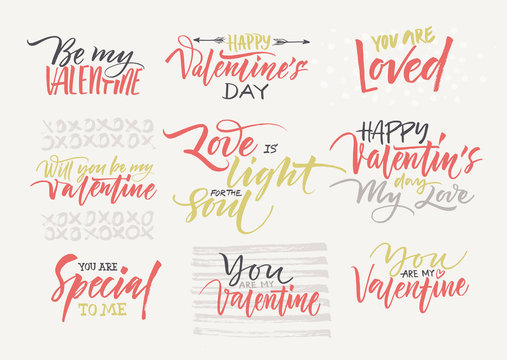 Be my
VALENTINE
HAPPY
Valentine's
DAY
YOU ARE
Loved
XOXOXO
OXOXOX
Will you be my
Valentine
XOXOXO
OXOXOX
Love is
light
FOR THE
Soul
HAPPY
Valentin's
day
My Love
YOU ARE
Special
TO ME
You
ARE MY
Valentine
You
ARE MY
Valentine